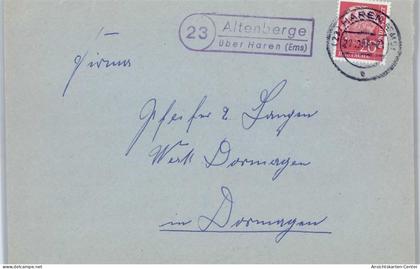 23 Altenberge
über Haren (Ems)
HAREN
Firma
Pfeifer & Langen
Werk Dormagen
in Dormagen
www.delcampe.net
Ansichtskarten-Center